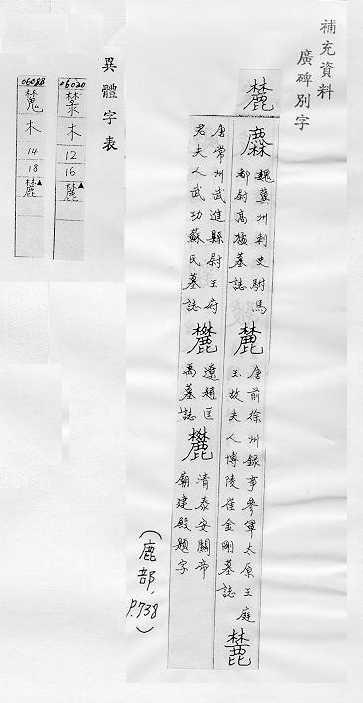 補充資料
廣碑別字
麓
麓 魏冀州刺史駙馬
都尉高猛墓誌
麓 唐前徐州錄事參軍太原王庭
玉故夫人博陵崔金剛墓誌
麓
唐常州武進縣尉王府
君夫人武功蘇氏墓誌
麓 遼趙匡
禹墓誌
麓 清泰安關帝
廟建殿題字
(鹿部, P.738)
異體字表
06020
木
12
16
麓▲
06088
木
14
18
麓▲